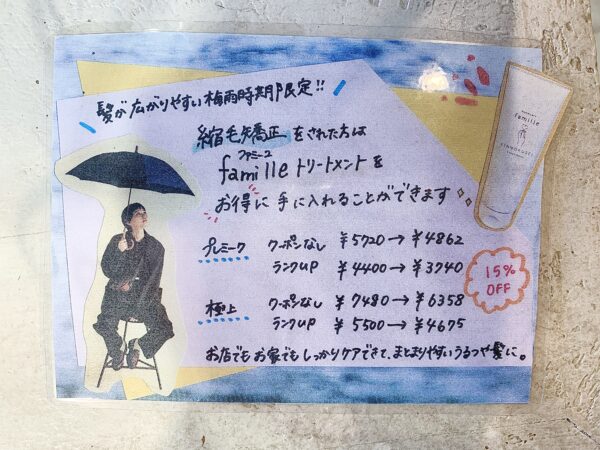 髪が広がりやすい梅雨時期限定!!
縮毛矯正をされた方は
ファミーユ
familleトリートメントを
お得に手に入れることができます
プレミーク クーポンなし ¥5720→¥4862
ランクUP ¥4400→¥3740
極上 クーポンなし ¥7480→¥6358
ランクUP ¥5500→¥4675
15%
OFF
お店でもお家でもしっかりケアできて、まとまりやすいうるつや髪に。
famille